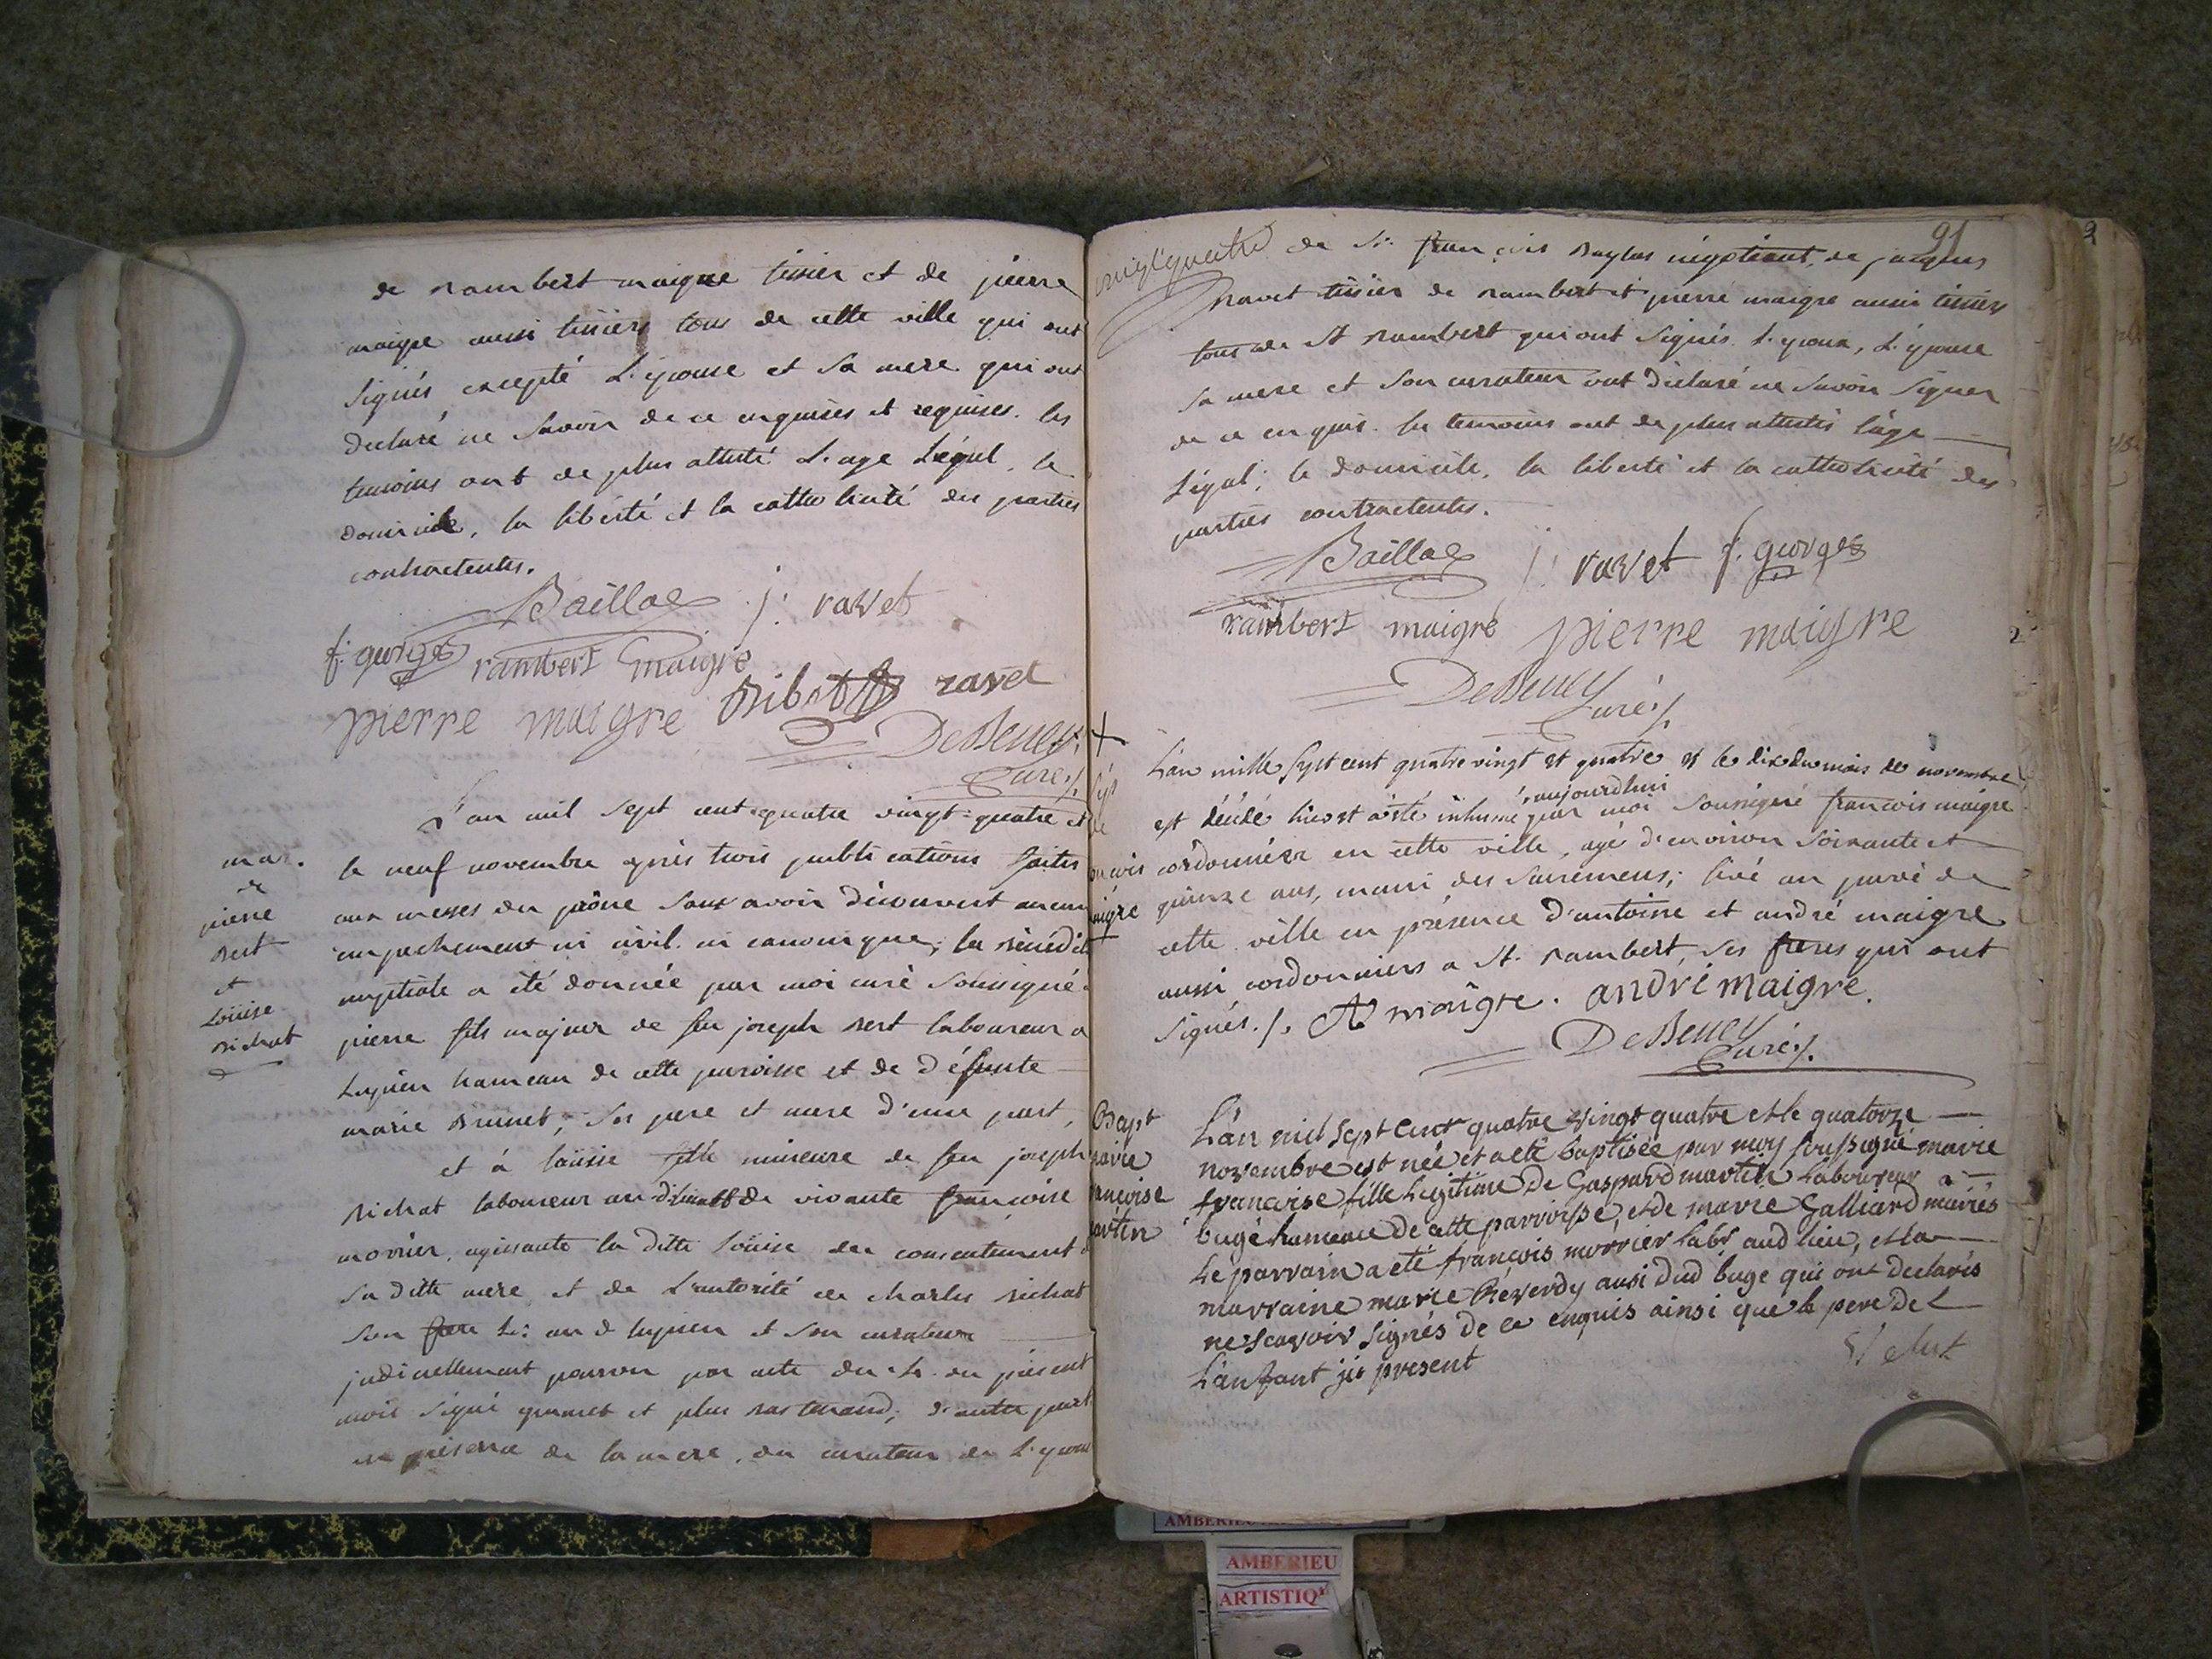 de rambert maigre tissier et de pierre
maigre aussi tissiers tous de cette ville qui ont
signés excepté L'epouse et sa mere qui ont
declaré ne savoir de ce enquises et requises. les
temoins ont de plus attesté L'age Légal, le
domicile, la liberté et la catholicité des parties
contractentes.
Baillac j. ravet
f. georges rambert maigre
pierre maigre ravet
DeBeney
Curé ./.
L'an mil sept cent quatre vingt=quatre et
le neuf novembre après trois publications faites
aux messes du prône sans avoir découvert aucun
empechement ni civil ni canonique, la bénédict
nuptiale a été donnée par moi curé soussigné
pierre fils majeur de feu joseph bert laboureur a
hameau de cette paroisse et de défunte
marie brunet, ses pere et mere d'une part,
et à loüise fille mineure de feu joseph
bichat laboureur au de vivante francoise
morier, agissante la ditte loüise du consentement
sa ditte mere et de L'autorité de charles bichat
son frere et son curateur
judiciellement pourvu par acte du du présent
mois signé et plus bas d'autre part
en présence de la mere, du curateur de L'epouse
mar.
de
pierre
bert
et
Loüise
bichat
91
vingt quatre
de Sr. françois négotiant, de jacques
ravet tissier de rambert et pierre maigre aussi tissiers
tous de St rambert qui ont signés L'epoux, L'épouse
sa mere et son curateur ont déclaré ne savoir signer
de ce enquis. les temoins ont de plus attestés l'âge
Légal, le domicile, la liberté et la catholicité des
parties contractentes.
Baillac j. ravet f. georges
rambert maigre pierre maigre
DeBeney
Curé ./.
+
L'an mille sept cent quatre vingt et quatre et le dix du mois de novembre
aujourdhui
est décédé hier et a été inhumé par moi soussigné francois maigre
cordonnier en cette ville, agé d'environ soixante et
quinze ans, muni des sacremens; livé au pavé de
cette ville en présence d'antoine et andré maigre
aussi cordonniers a St. rambert, ses freres qui ont
signés ./. A maigre. andré maigre.
DeBeney
Curé ./.
Bapt
marie
francoise
martin
L'an mil sept cent quatre vingt quatre et le quatorze
novembre est née et a eté baptisée par moy soussigné marie
francoise fille legitime de Gaspard martin laboureur a
bugé hameaue de cette parroisse, et de marie Galliard mariés
Le parrain a eté françois morrier labr aud lieu, et la
marraine marie Réverdy aussi dud buge qui ont declarés
ne scavoir signés de ce enquis ainsi que le pere de L
L'anfant ici present
AMBERIEU
ARTISTIQ